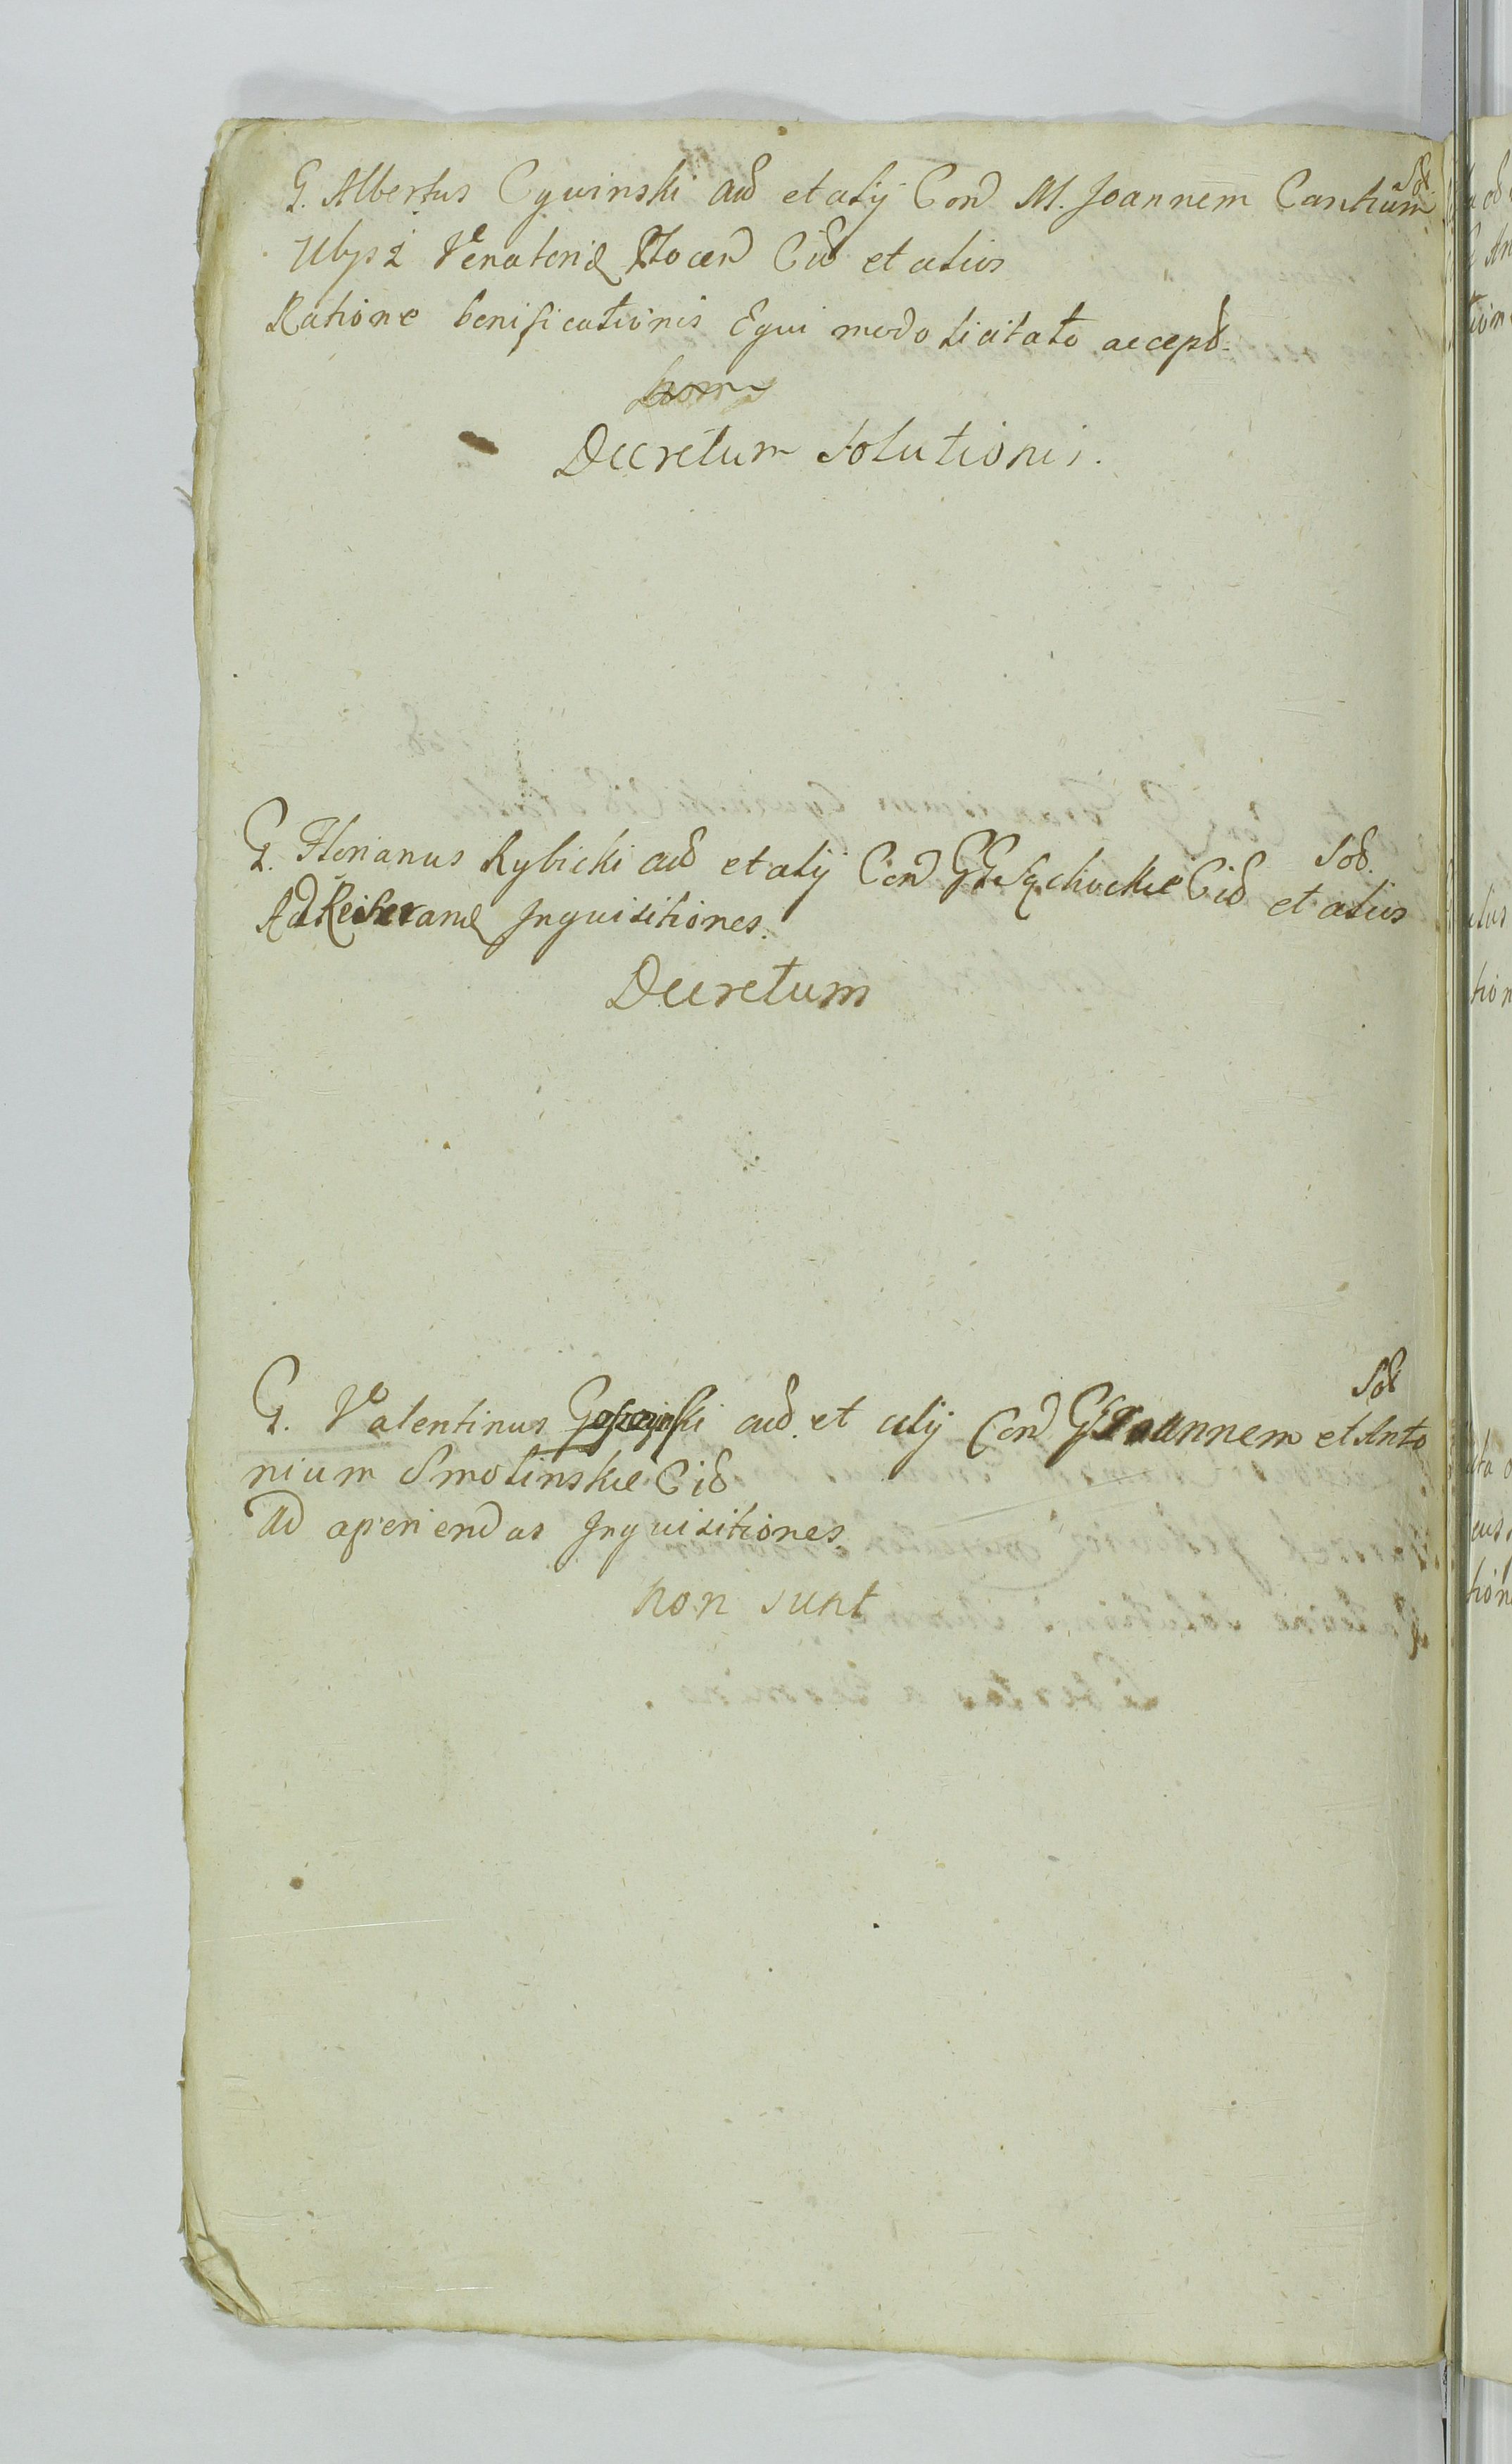 Sod
G. Albertus Cywinski aud et alij Con M. Joannem Cantium
Ulysz Venatorid Plocen Cid et alios
Ratione benificationis Equi modo licitato accept.
Decretum Solutionis.
Sod.
G. Florianus Rybicki aud et alij Con GG Sqchockie Cid et alios
Ad Reiterand Inquisitiones.
Decretum
Sod
G. Valentinus aud. et alij Con GG Joannem et Anto
nium Smolinskie Cid
Ad aperiendas Inquisitiones
non sunt